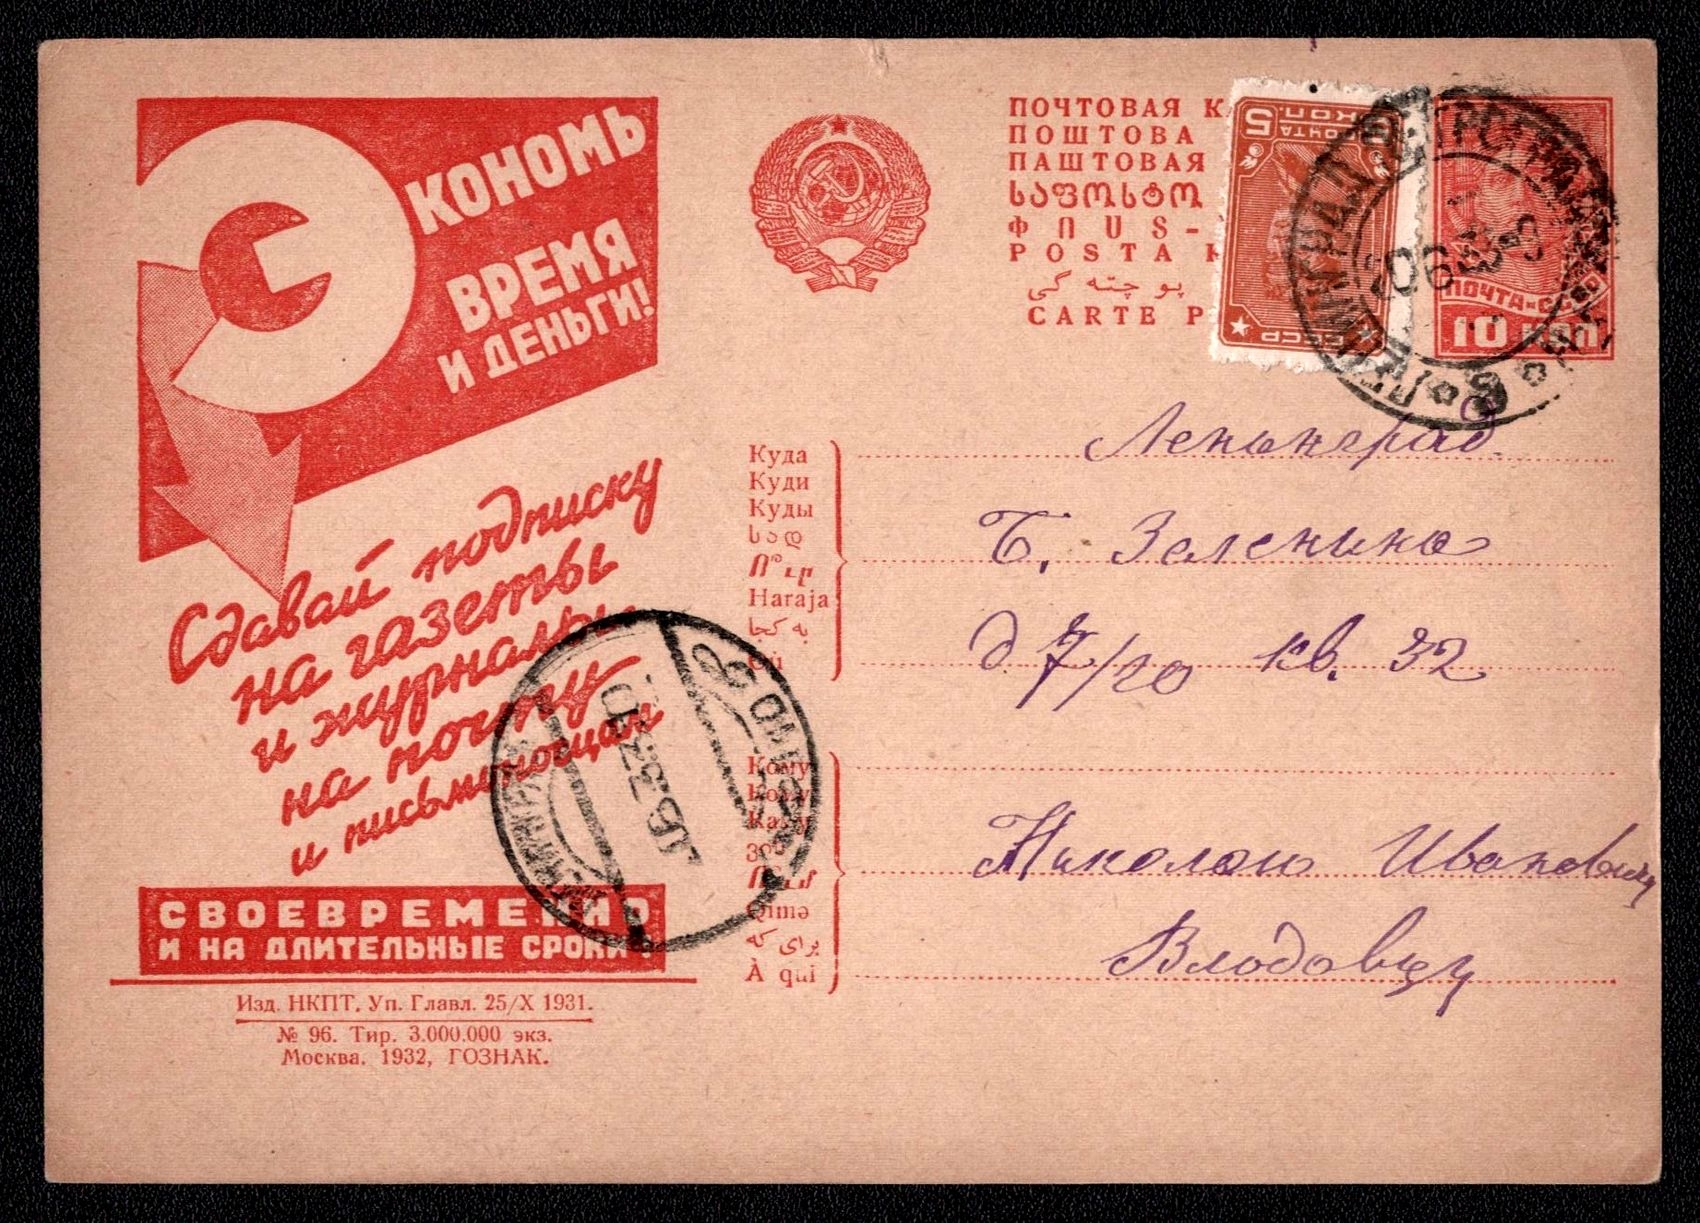 ЭКОНОМЬ
ВРЕМЯ
И ДЕНЬГИ!
Сдавай подписку
на газеты
и журналы
на почту
и письмоносцам
СВОЕВРЕМЕННО
И НА ДЛИТЕЛЬНЫЕ СРОКИ!
Изд. НКПТ. Уп. Главл. 25/X 1931.
№ 96. Тир. 3.000.000 экз.
Москва. 1932, ГОЗНАК.
ПОЧТОВАЯ К
ПОШТОВА
ПАШТОВАЯ
ՓՈՍՏ-
POSTA K
پوچته گی
CARTE P
5 КОП.
ПОЧТА
СССР
ПОЧТА СССР
10 КОП
ЛЕНИНГРАД
Куда
Куди
Куды
სად
Ո՞ւր
Haraja
به کجا
Кому
Кому
Каму
Qimə
برای که
À qui
Леньнград.
Б. Зеленина
д 7/10 кв. 32
Николаю Ивановичу
Влодовцу